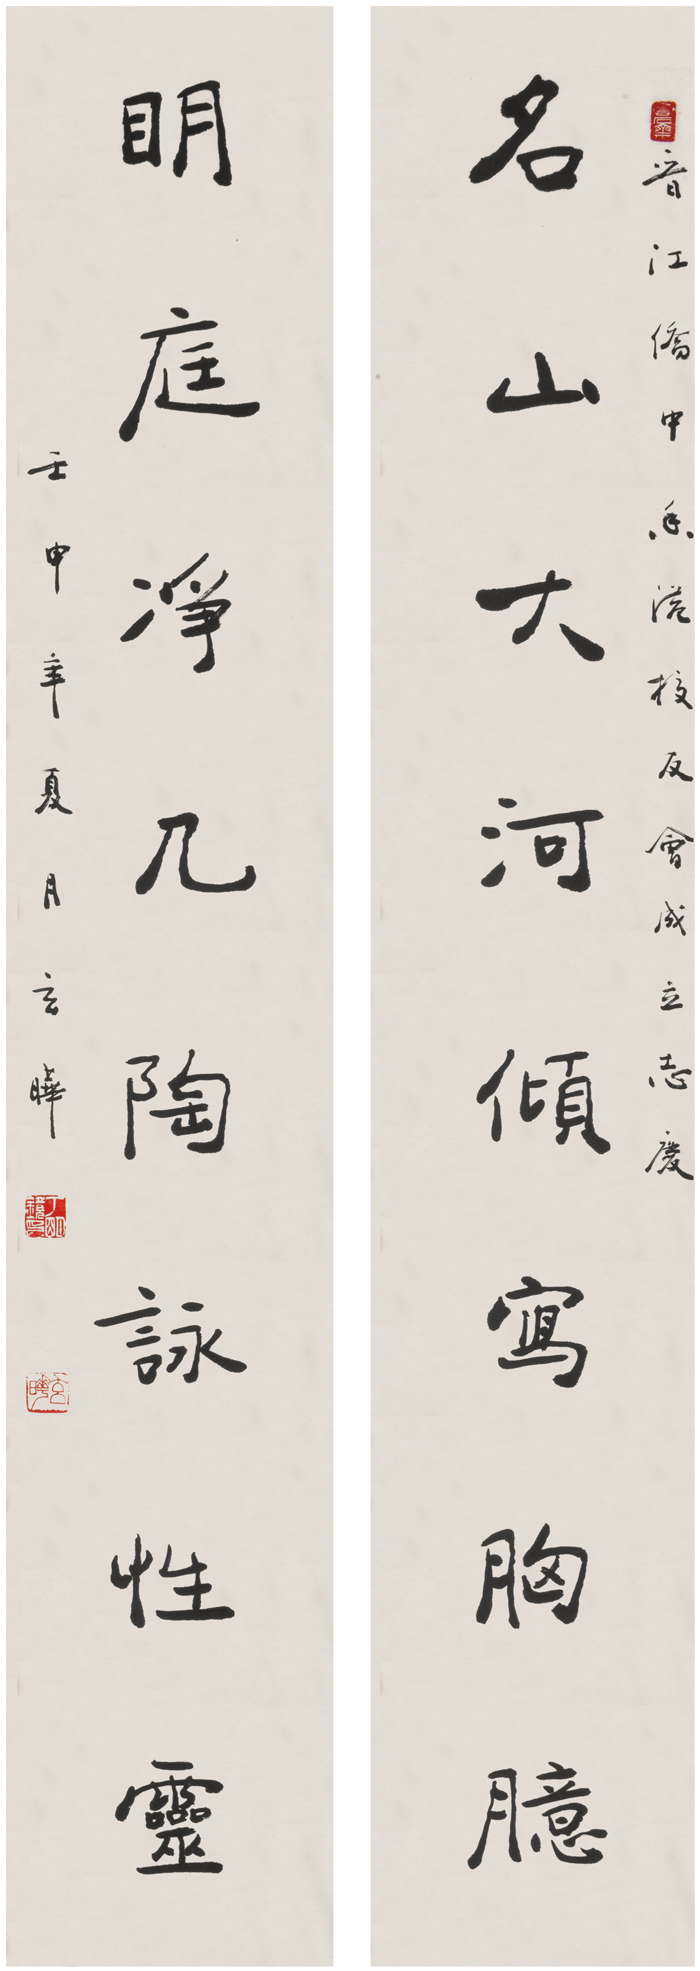 晋江僑中香港校友會成立志慶
名山大河傾寫胸臆
明庭凈几陶詠性靈
壬申年夏月玄曄